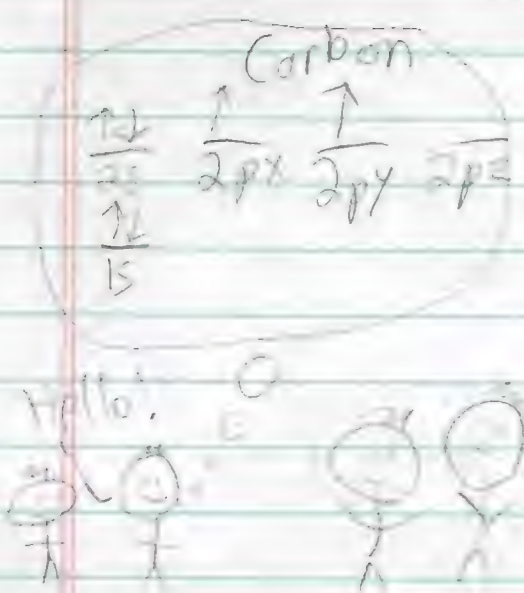 Carbon
↑↓ ↑ ↑
2s 2px 2py 2pz
↑↓
1s
Hello!